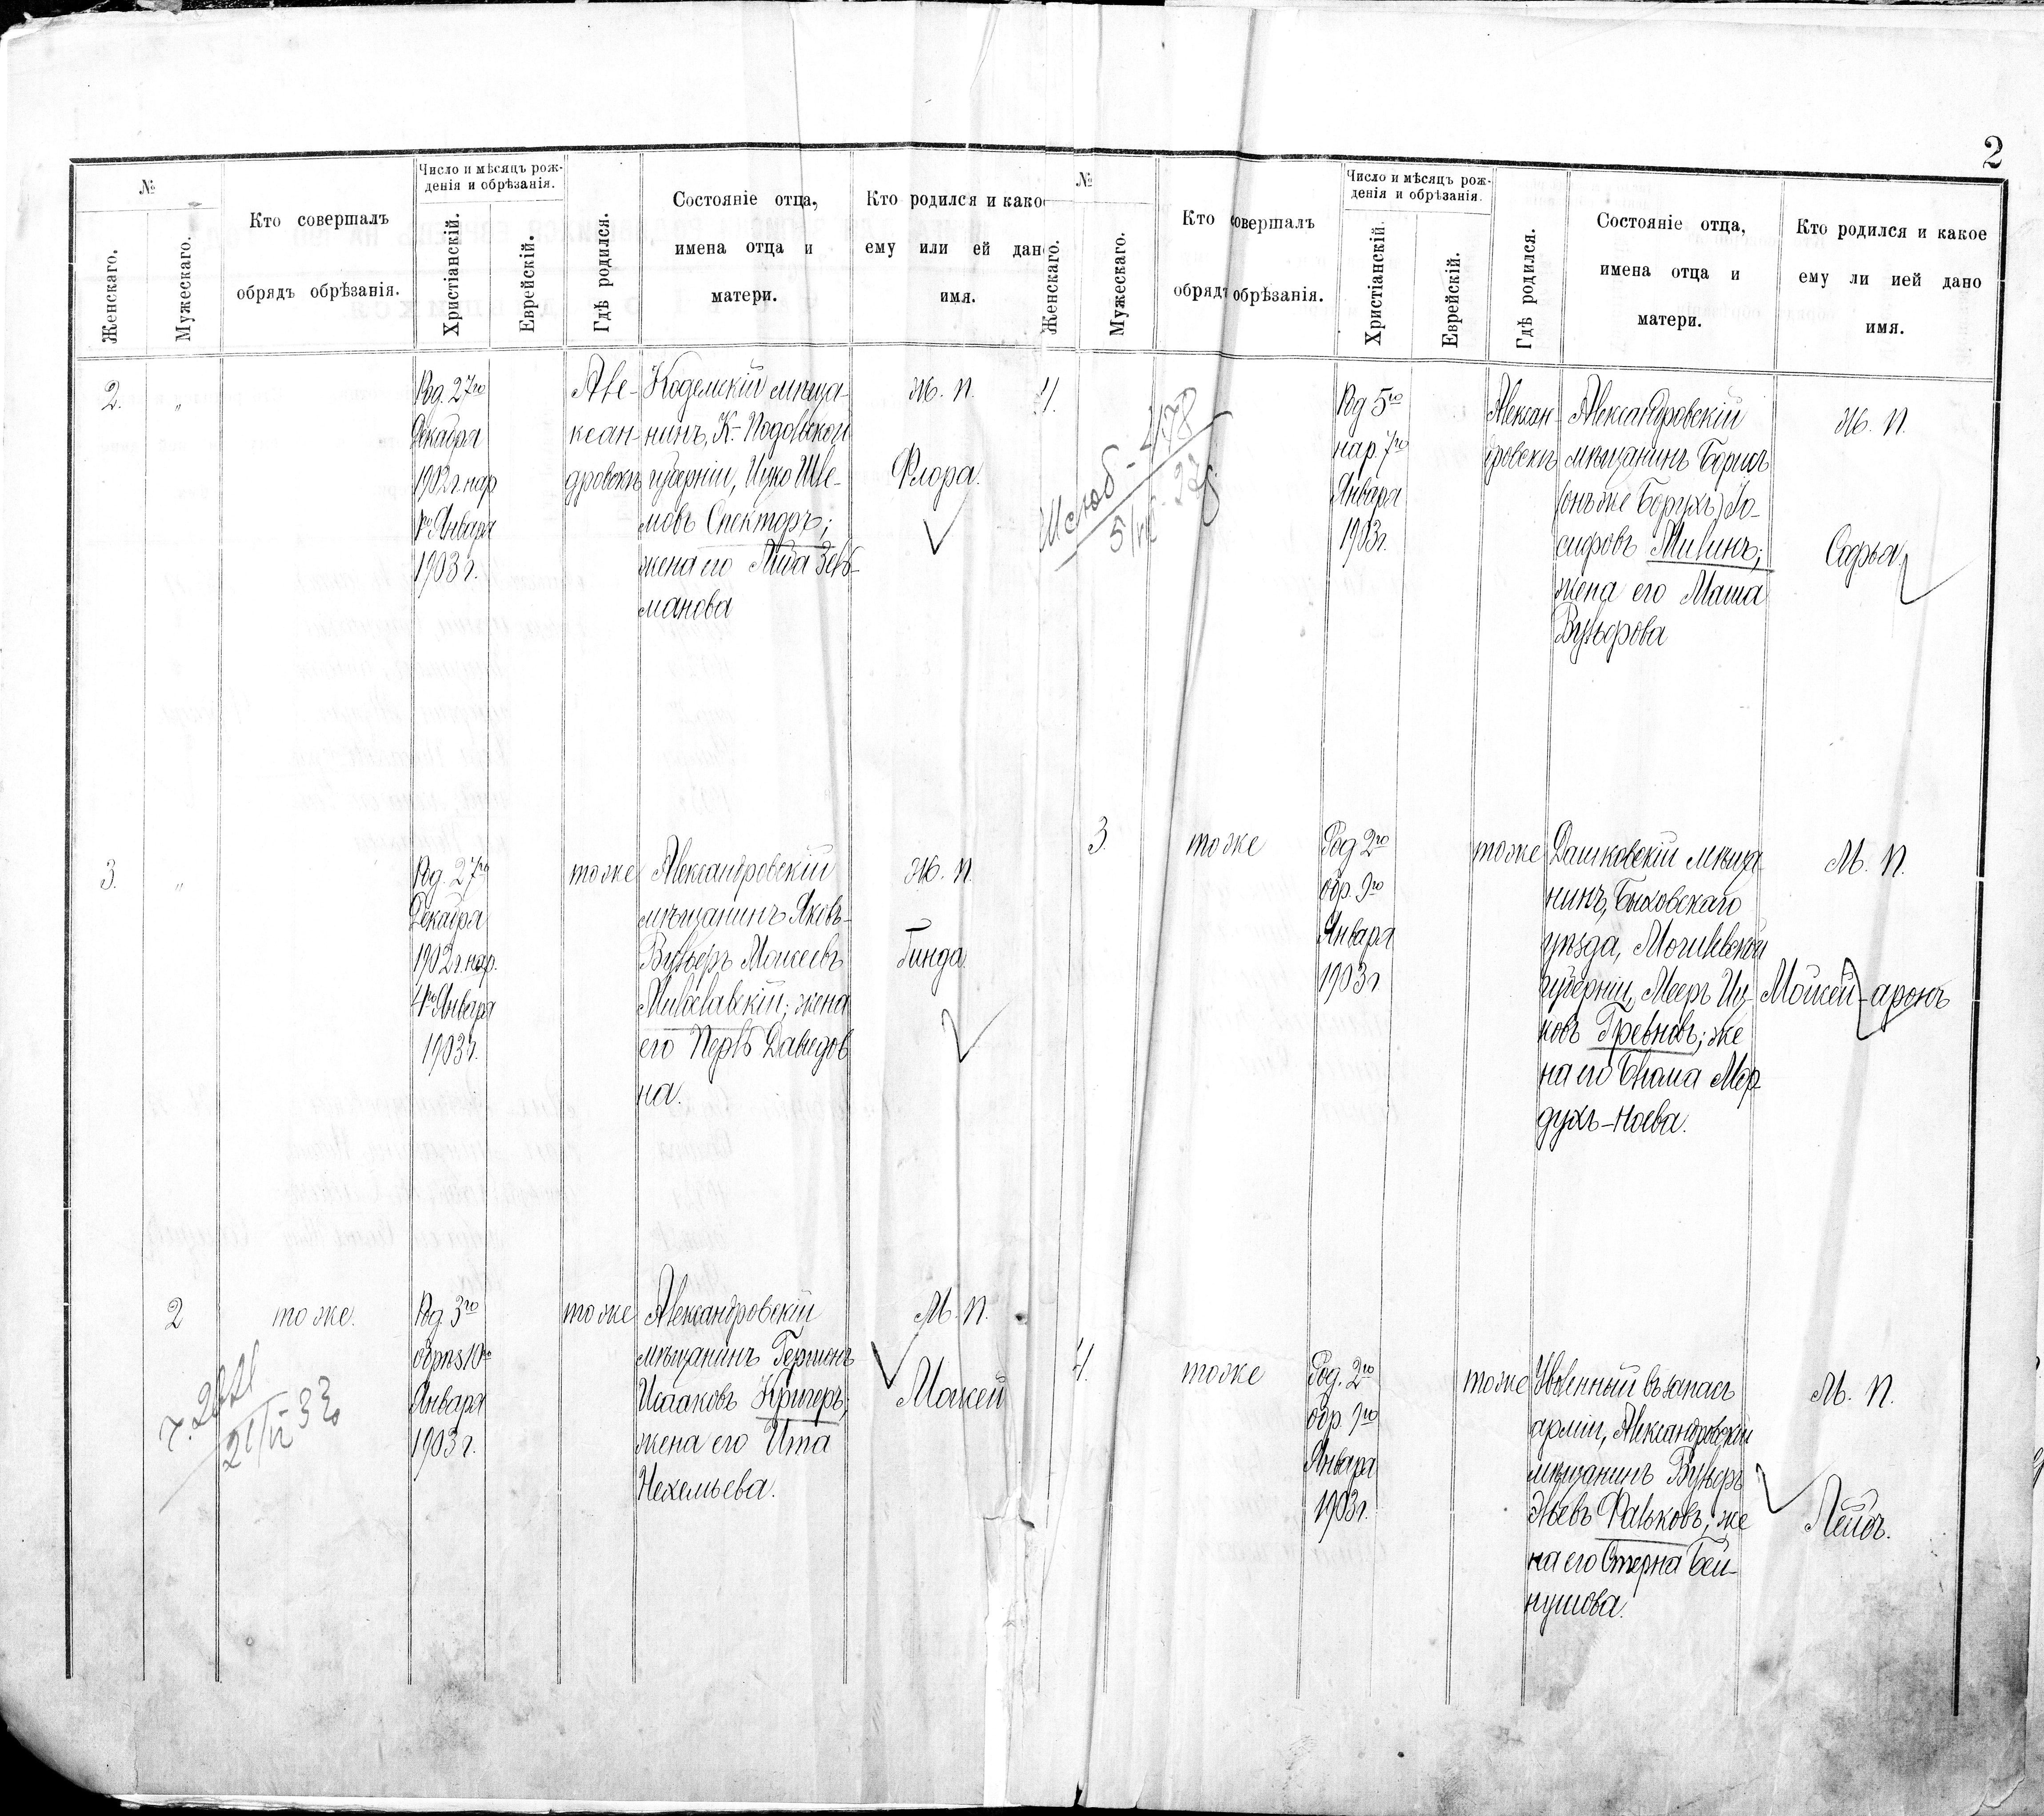 2
№
Женскаго.
Мужескаго.
Кто совершалъ
обрядъ обрѣзанія.
Число и мѣсяцъ рож-
денія и обрѣзанія.
Христіанскій.
Еврейскій.
Гдѣ родился.
Состояніе отца,
имена отца и
матери.
Кто родился и како
ему или ей дан
имя.
2.
"
Род. 27го
Декабря
1902 г. нар
1го Января
1903 г.
Але-
ксан-
дровскъ
Кодемскій мѣща-
нинъ, К-Подольской
губерніи, Ицко Шле-
мовъ Спекторъ;
жена его Либа Зель-
манова
Ж. П.
Флора.
3.
"
Род. 27го
Декабря
1902 г. нар.
4го Января
1903 г.
тоже
Александровскій
мѣщанинъ Яковъ-
Вульфъ Моисеевъ
Милославскій; жена
его Перль Давидов
на.
Ж. П.
Гинда.
2
тоже.
Род. 3го
обрѣз 10го
Января
1903 г.
тоже
Александровскій
мѣщанинъ Гершонъ
Исааковъ Кригеръ;
жена его Ита
Нехемьева.
М. П.
Моисей
№
Женскаго.
Мужескаго.
Кто совершалъ
обрядъ обрѣзанія.
Число и мѣсяцъ рож-
денія и обрѣзанія.
Христіанскій.
Еврейскій.
Гдѣ родился.
Состояніе отца,
имена отца и
матери.
Кто родился и какое
ему ли ией дано
имя.
4.
Род 5го
нар. 7го
Января
1903 г.
Алексан-
дровскъ
Александровскій
мѣщанинъ Борисъ
(онъ же Борухъ) Іо-
сифовъ Милинъ;
жена его Маша
Вульфова
Ж. П.
Софья.
3.
тоже
Род 2го
обр. 9го
Января
1903 г
тоже
Дашковскій мѣща-
нинъ, Быховскаго
уѣзда, Могилевской
губерніи, Мееръ Иц-
ковъ Гревновъ; же
на его Блюма Мор
духъ-Ноева.
М. П.
Мойсей-аронъ
4.
тоже
Род. 2го
обр. 9го
Января
1903 г.
тоже
Уволенный въ запасъ
арміи, Александровскій
мѣщанинъ Вульфъ
Эльевъ Фальковъ; же
на его Стерна Бей-
нушова.
М. П.
Лейбъ.